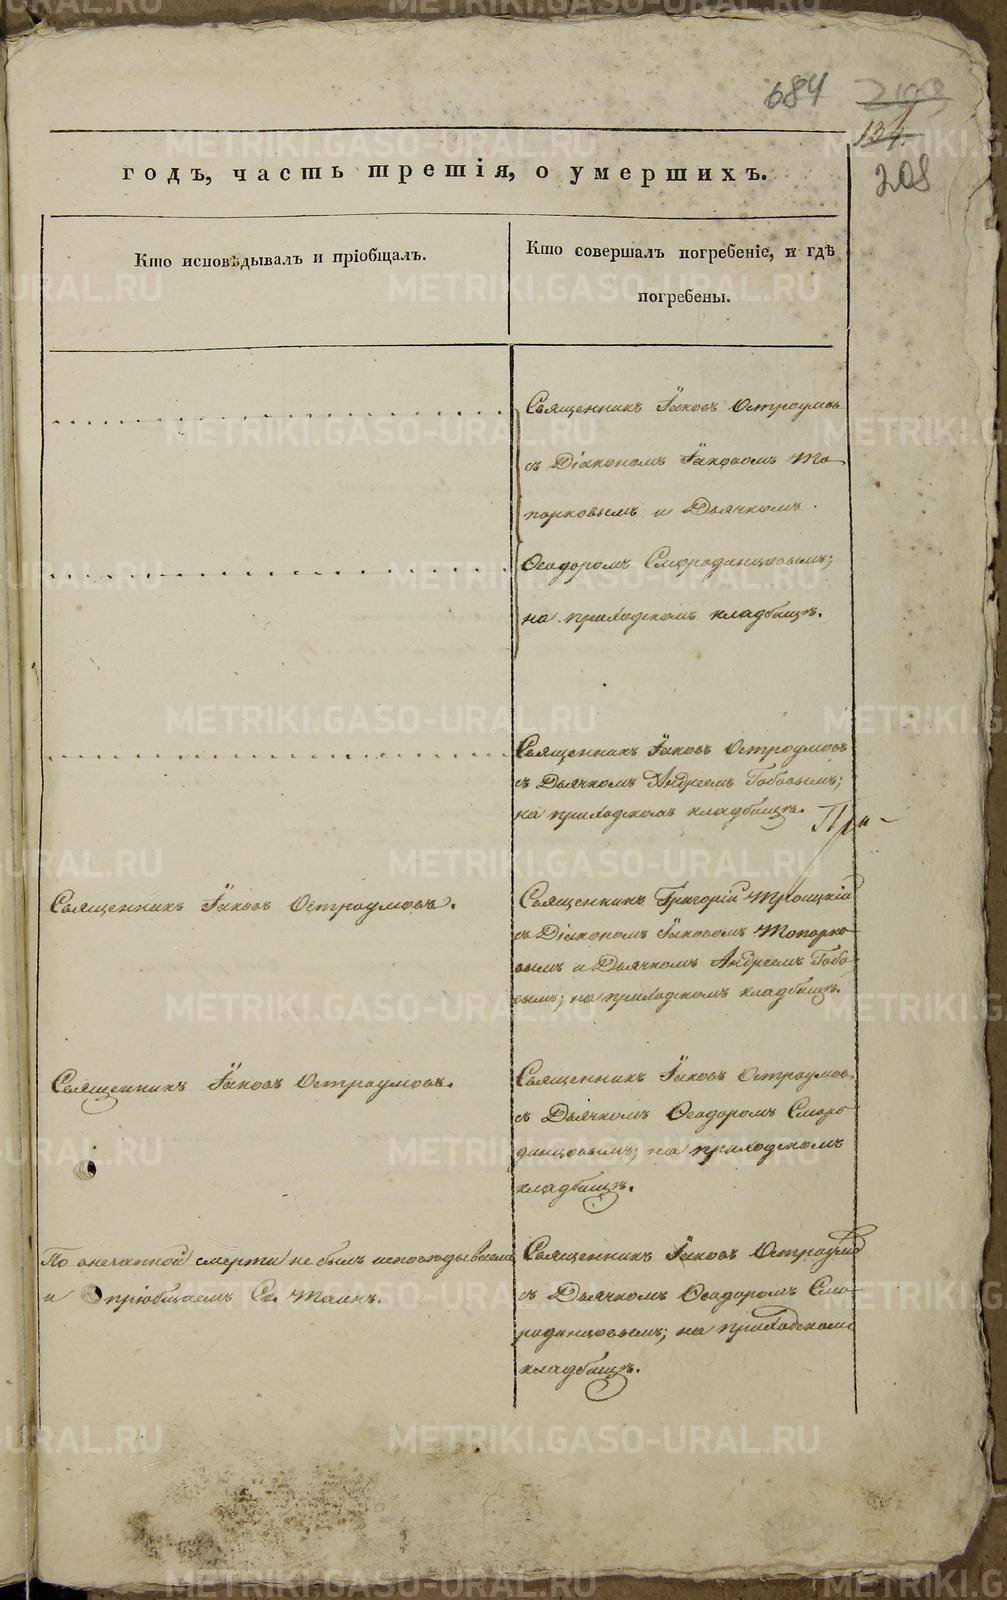 684
134.
208
годъ, часть третія, о умершихъ.
Кто исповѣдывалъ и пріобщалъ.
Кто совершалъ погребеніе, и гдѣ
погребены.
Священникъ Іаковъ Остроумовъ
съ Діакономъ Іаковомъ То-
порковымъ и Дьячкомъ
Ѳеодоромъ Смородинцовымъ;
на приходскомъ кладбищѣ.
Священникъ Іаковъ Остроумовъ
съ Дьячкомъ Андреемъ Бобовымъ;
на приходскомъ кладбищѣ.
При-
Священникъ Іаковъ Остроумовъ.
Священникъ Григорій Троицкій
съ Діакономъ Іаковомъ Топорко
вымъ и Дьячкомъ Андреемъ Бобо
вымъ; на приходскомъ кладбищѣ.
Священникъ Іаковъ Остроумовъ.
Священникъ Іаковъ Остроумовъ
съ Дьячкомъ Ѳеодоромъ Сморо
динцовымъ; на приходскомъ
кладбищѣ.
По внезапной смерти не былъ исповѣдываемъ
и пріобщаемъ Св. Таинъ.
Священникъ Іаковъ Остроумов
съ Дьячкомъ Ѳеодоромъ Смо-
родинцовымъ; на приходскомъ
кладбищѣ.
METRIKI.GASO-URAL.RU